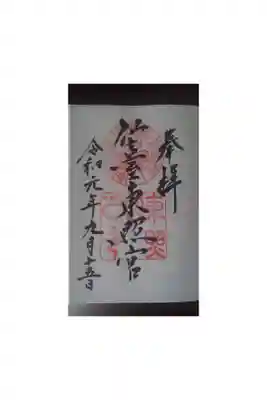 奉拝
仙臺東照宮
令和元年九月十五日